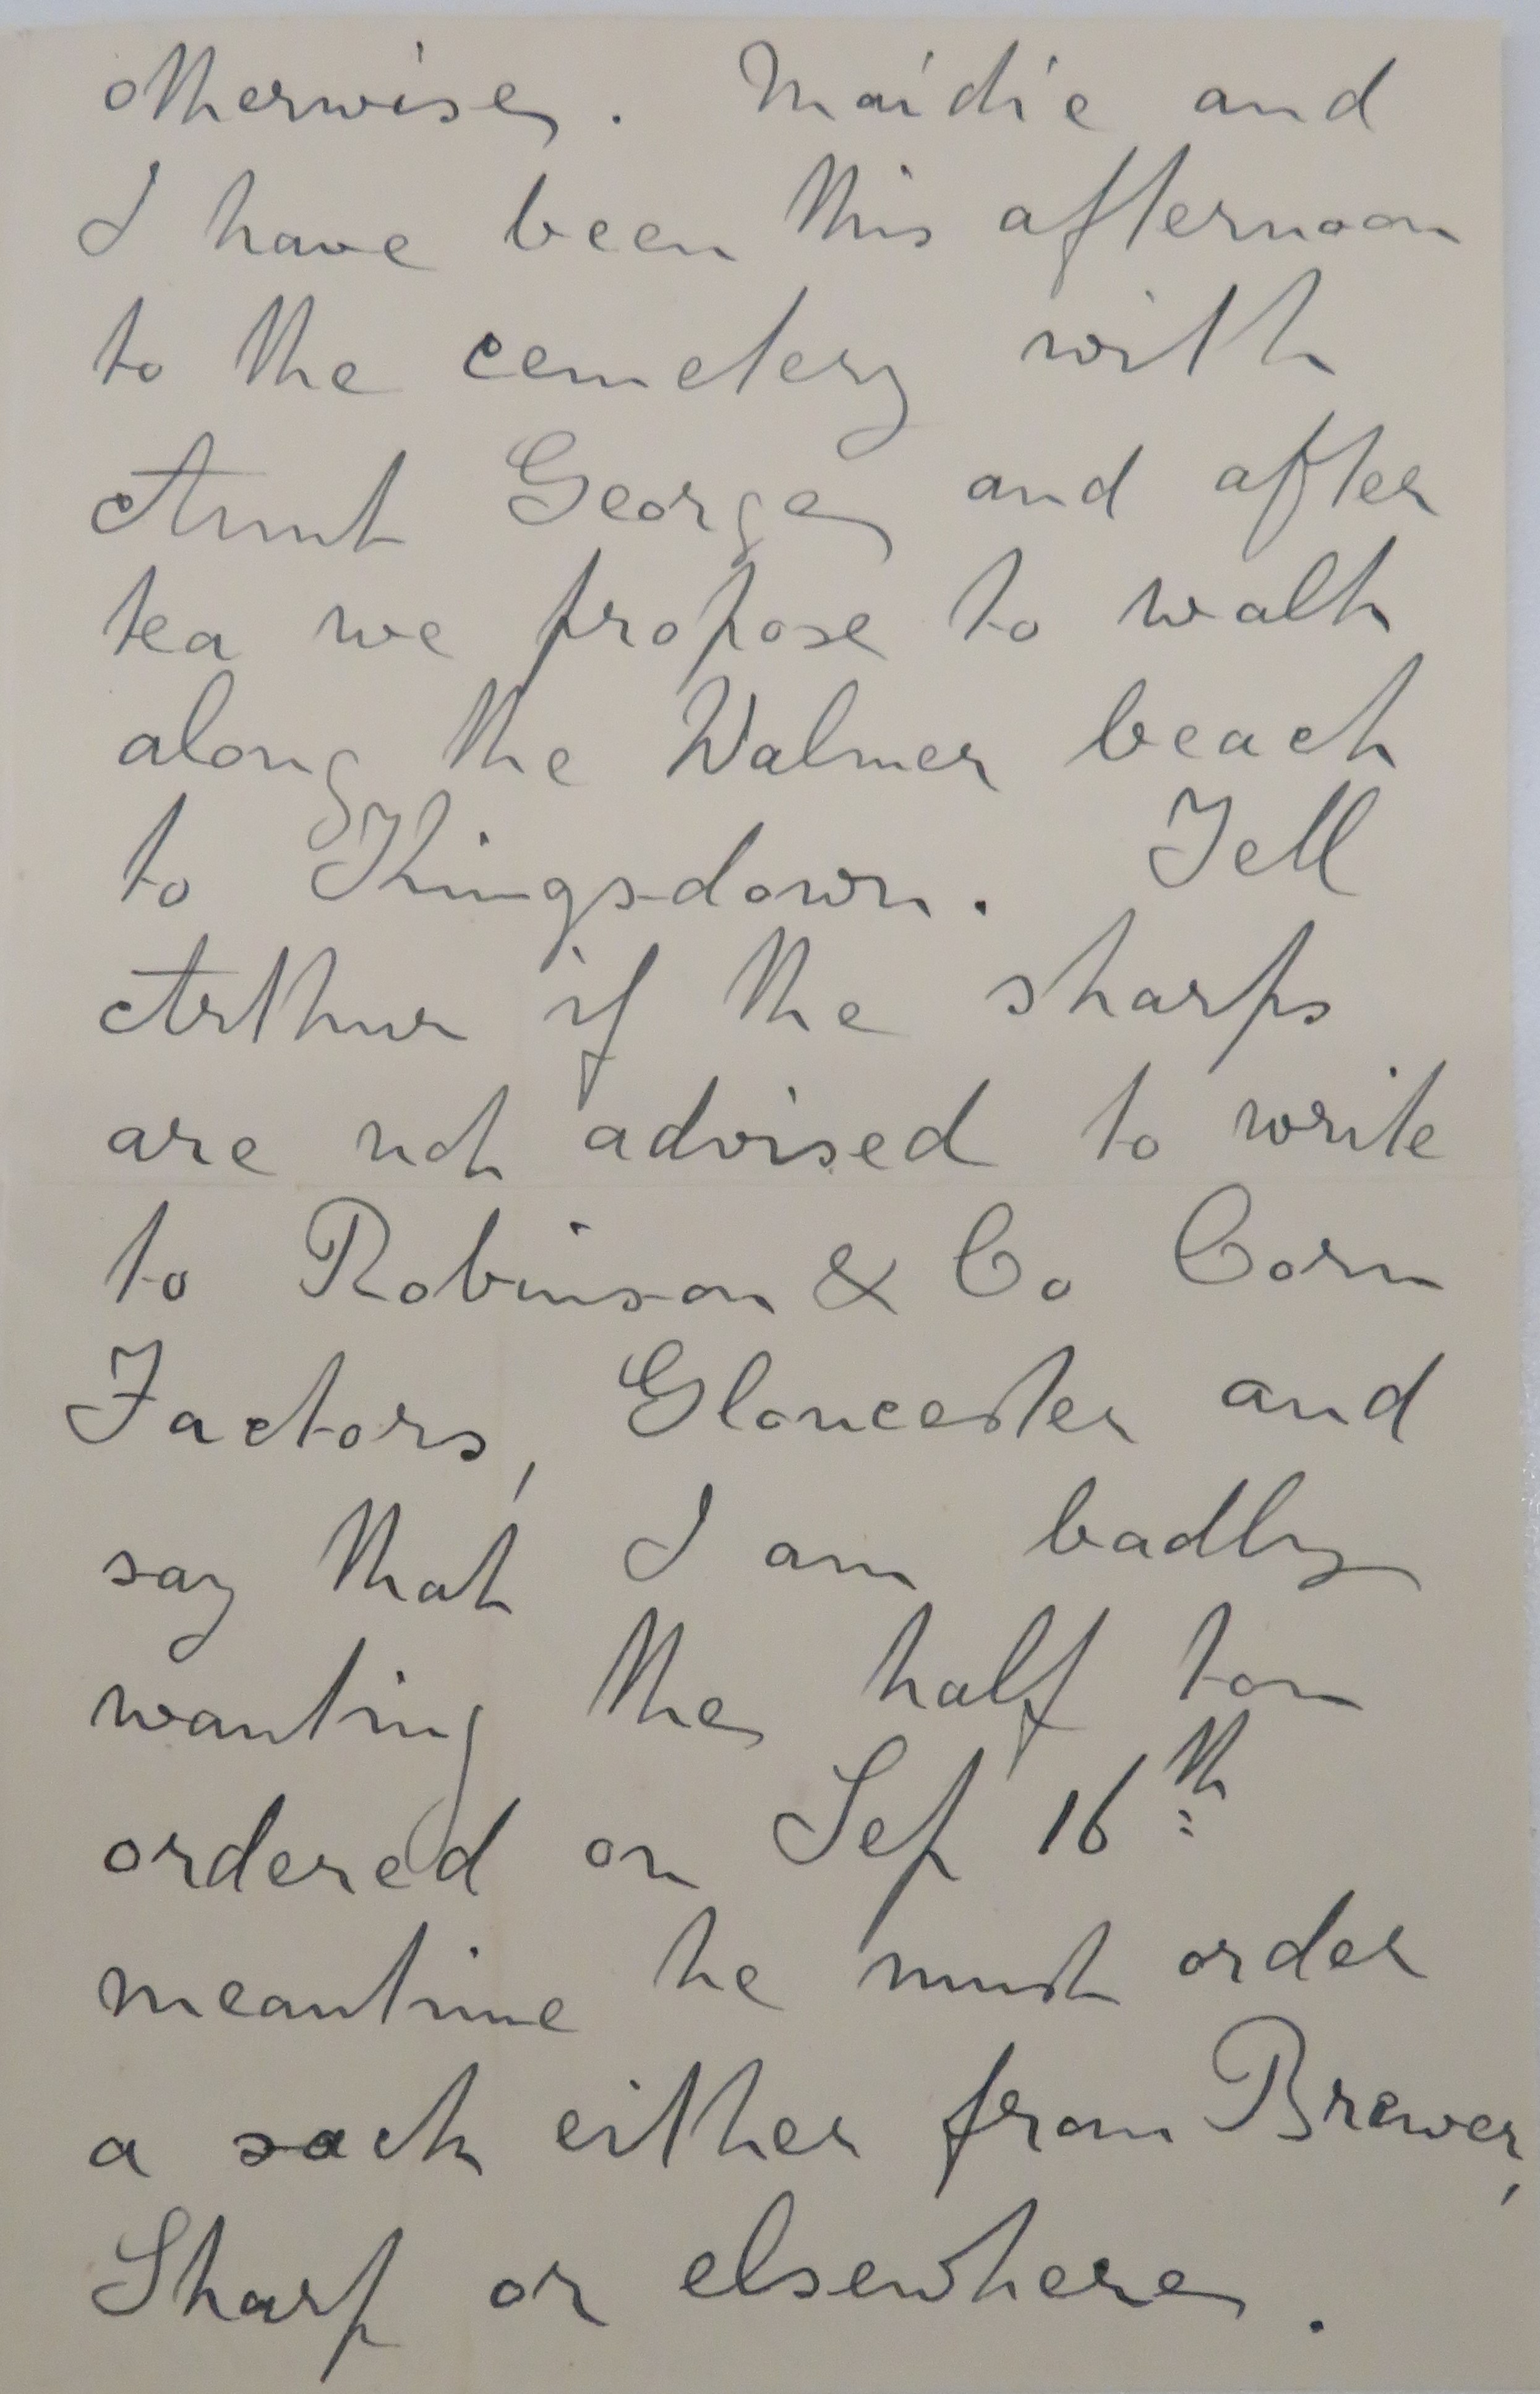 otherwise. Maidie and
I have been this afternoon
to the cemetery with
Aunt George and after
tea we propose to walk
along the Walmer beach
to Kingsdown. Tell
Arthur if the sharps
are not advised to write
to Robinson & Co Corn
Factors, Gloucester and
say that I am badly
wanting the half ton
ordered on Sep 16th
meantime he must order
a sack either from Brewer,
Sharp or elsewhere.